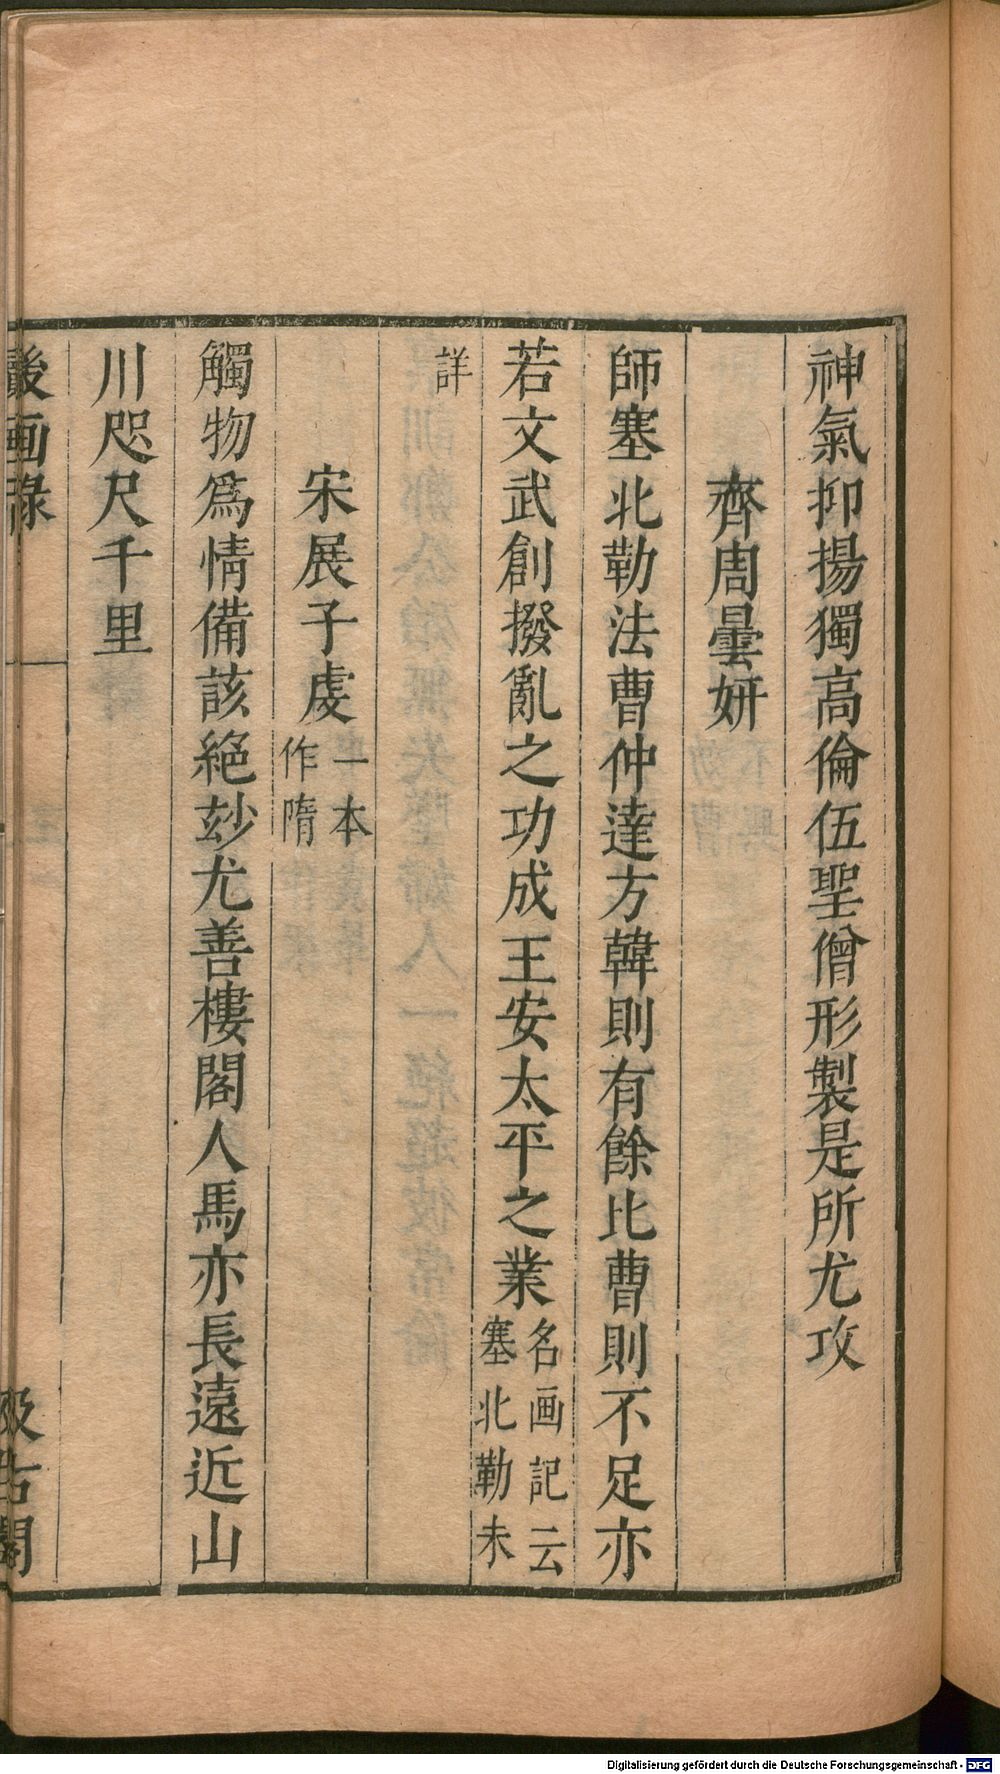 神氣抑揚獨高倫伍聖僧形製是所尤攻
齊周曇妍
師塞北勒法曹仲達方韓則有餘比曹則不足亦
若文武創撥亂之功成王安太平之業名画記云塞北勒未
詳
宋展子虔一本作隋
觸物爲情備該絕玅尤善樓閣人馬亦長遠近山
川咫尺千里
後画錄
汲古閣
Digitalisierung gefördert durch die Deutsche Forschungsgemeinschaft - DFG